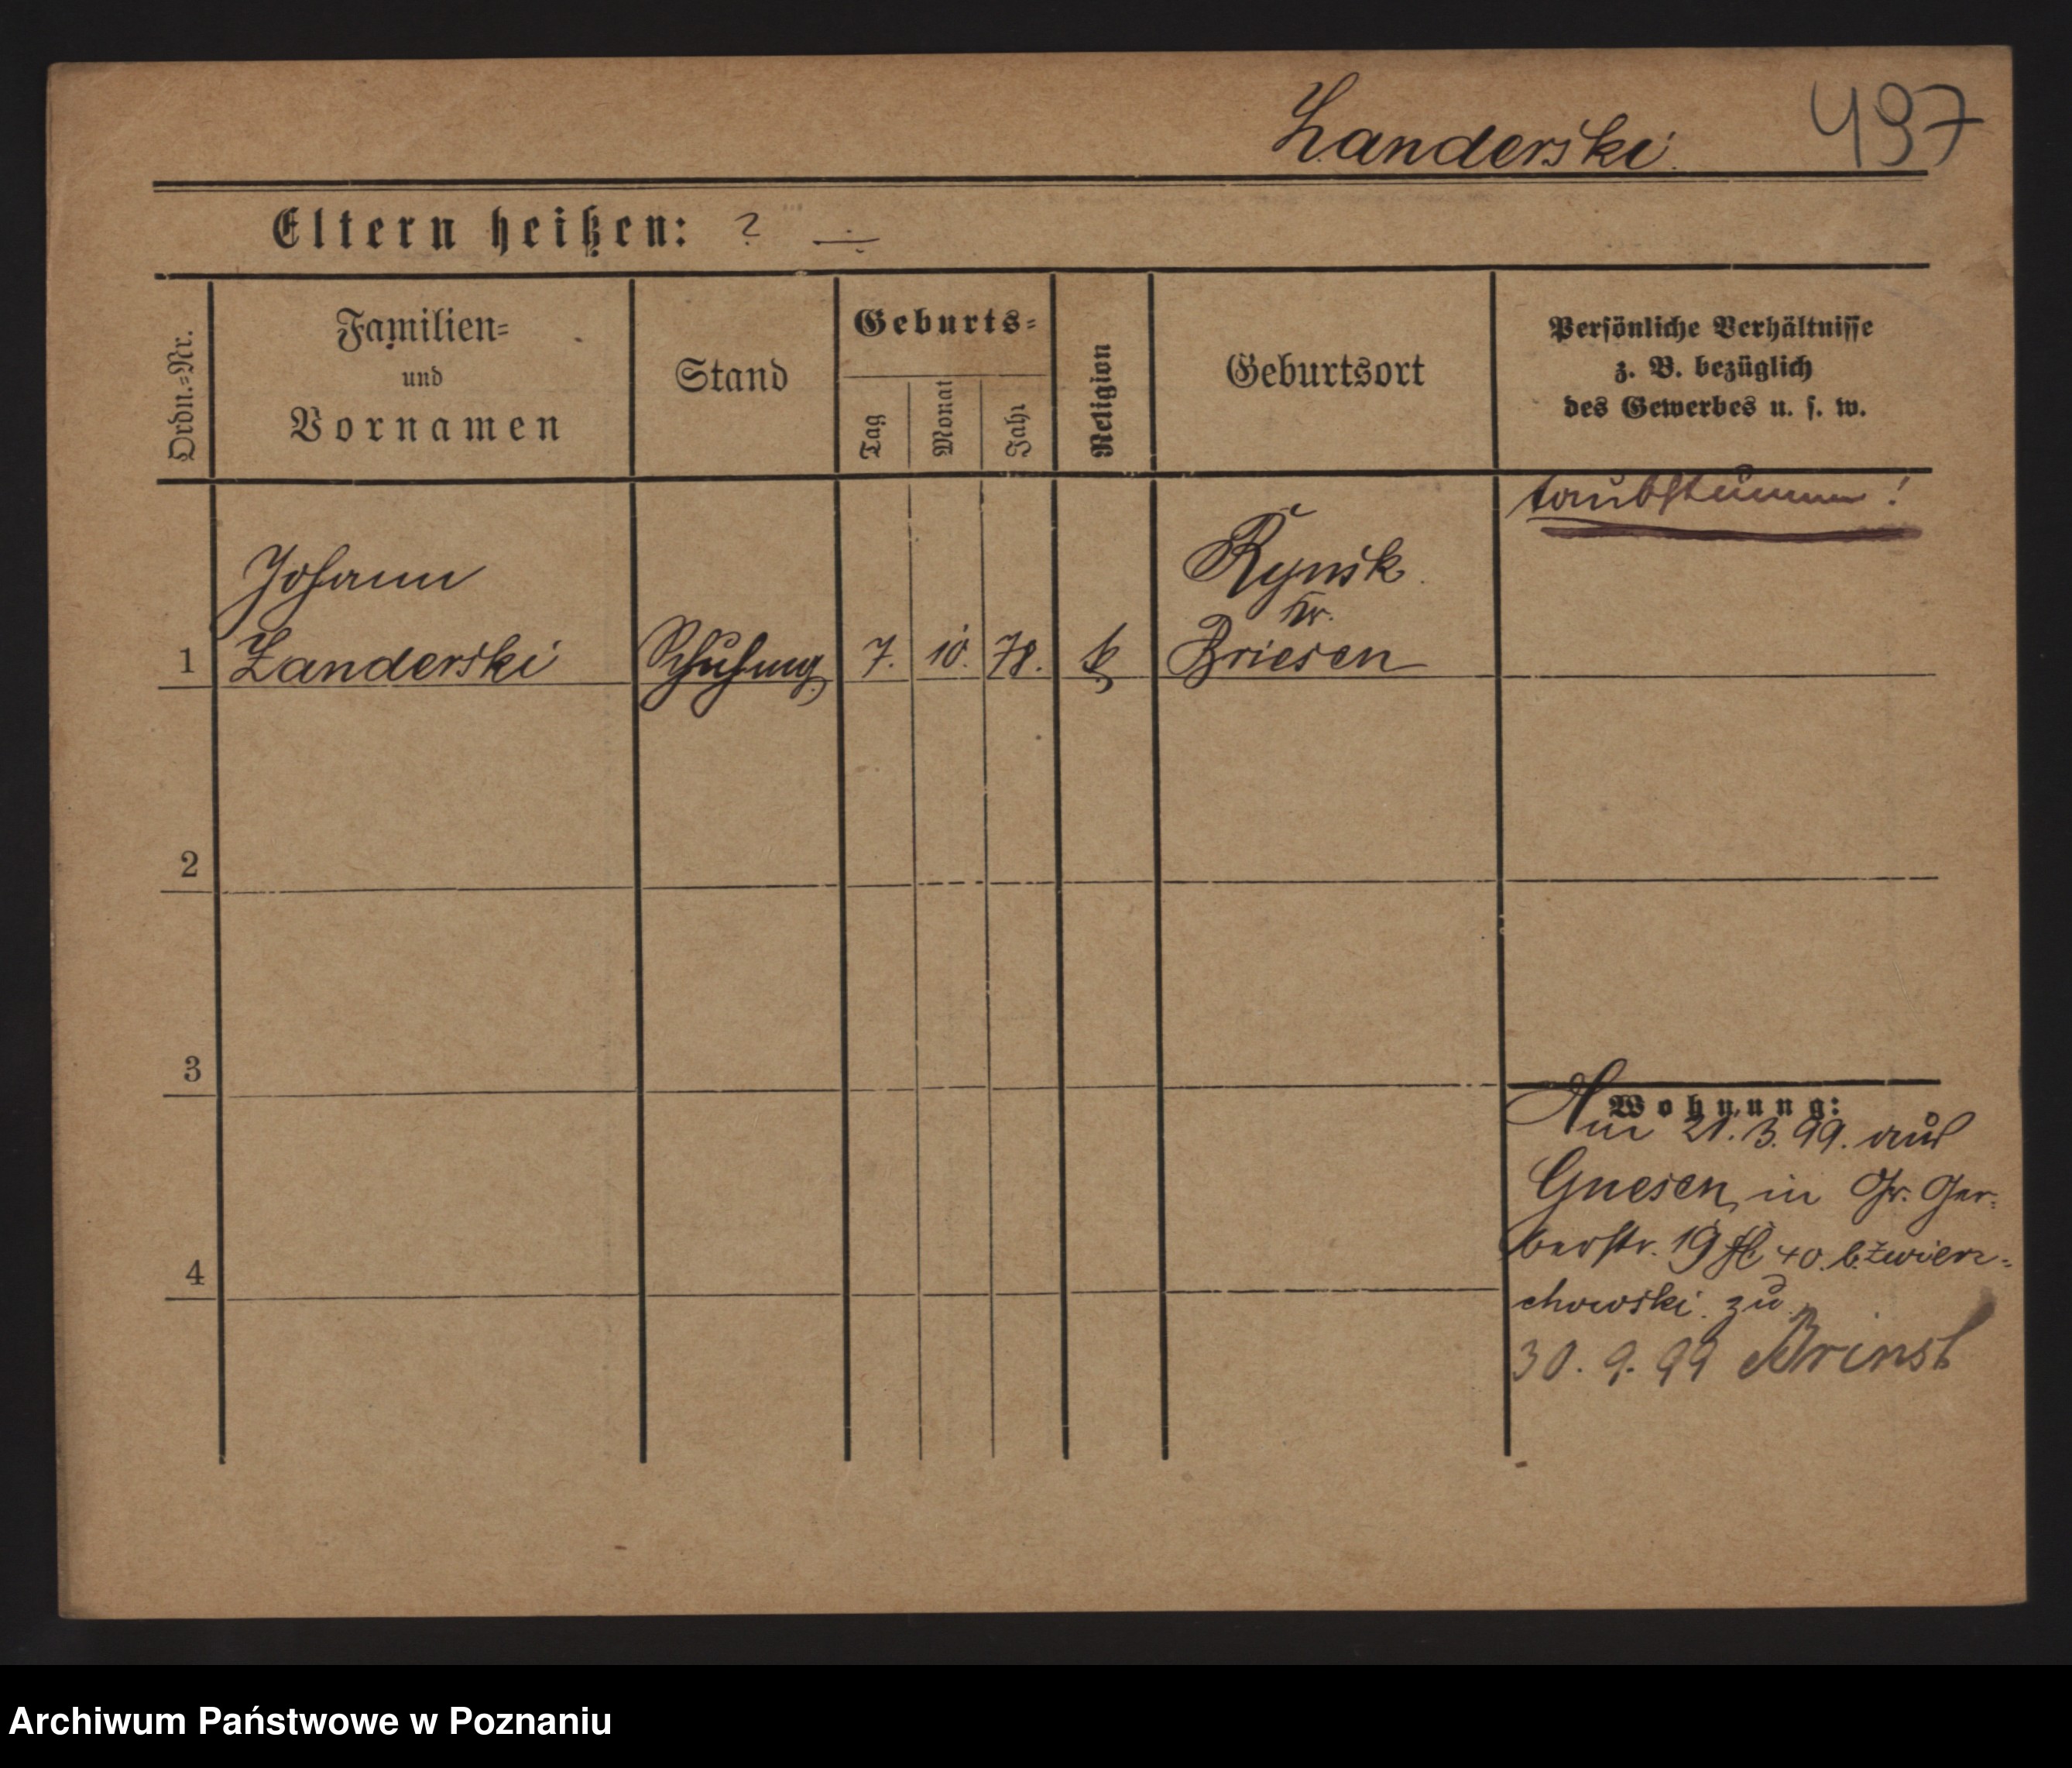 Zanderski.
497
Eltern heißen: ? ÷
Ordn.=Nr.
Familien=
und
Vornamen
Stand
Geburts=
Tag
Monat
Jahr
Religion
Geburtsort
Persönliche Verhältnisse
z. B. bezüglich
des Gewerbes u. s. w.
taubstumm!
1
Johann
Zanderski
7.
10.
78.
k
Rynsk
Kr.
Briesen
2
3
4
Wohnung:
Am 21.3.99. aus
Gnesen, in Gr. Ger=
berstr. 19 40. b. Zwierz=
chowski zu
30. 9. 99
Archiwum Państwowe w Poznaniu